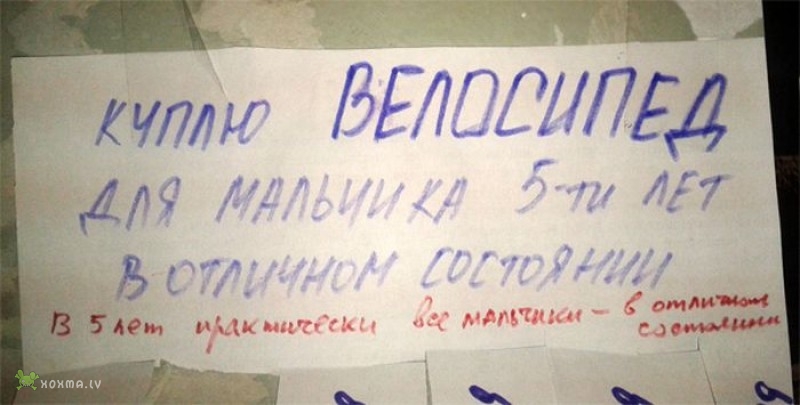 куплю ВЕЛОСИПЕД
ДЛЯ МАЛЬЧИКА 5-ти ЛЕТ
В ОТЛИЧНОМ СОСТОЯНИИ
В 5 лет практически все мальчики — в отличном
состоянии
xoxma.lv